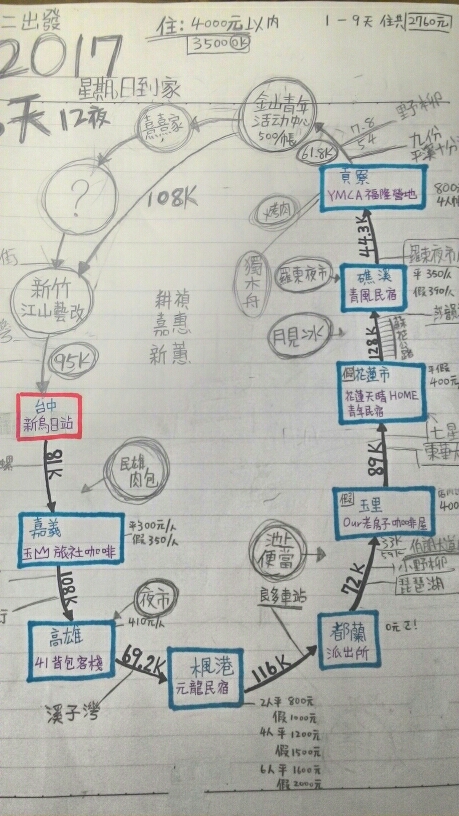 二出發
2017
天 12夜
住: 4000元以內
3500 OK
1-9天 住共 2760元
星期日到家
嘉嘉家
金山青年
活動中心
500/帳
?
108K
61.8K
7-8
54
野柳
九份
平溪十分
貢寮
YMCA福隆營地
800元
4人帳
烤肉
獨木舟
44.3K
新竹
江山藝改
耕禎
嘉惠
新蕙
羅東夜市
礁溪
青風民宿
羅東夜市
平350/人
假390/人
月見冰
128K
蘇花公路
95K
花蓮市
假
花蓮天晴HOME
青年民宿
平假
400元
台中
新烏日站
七星
東華大
89K
81K
民雄
肉包
假
玉里
Our老房子咖啡屋
400
嘉義
玉山旅社咖啡
平300元/人
假350/人
池上
便當
小野柳
琵琶湖
72K
108K
夜市
410元/人
良多車站
高雄
41背包客棧
都蘭
派出所
0元
69.2K
楓港
元龍民宿
116K
溪子灣
2人平 800元
假 1000元
4人平 1200元
假 1500元
6人平 1600元
假 2000元